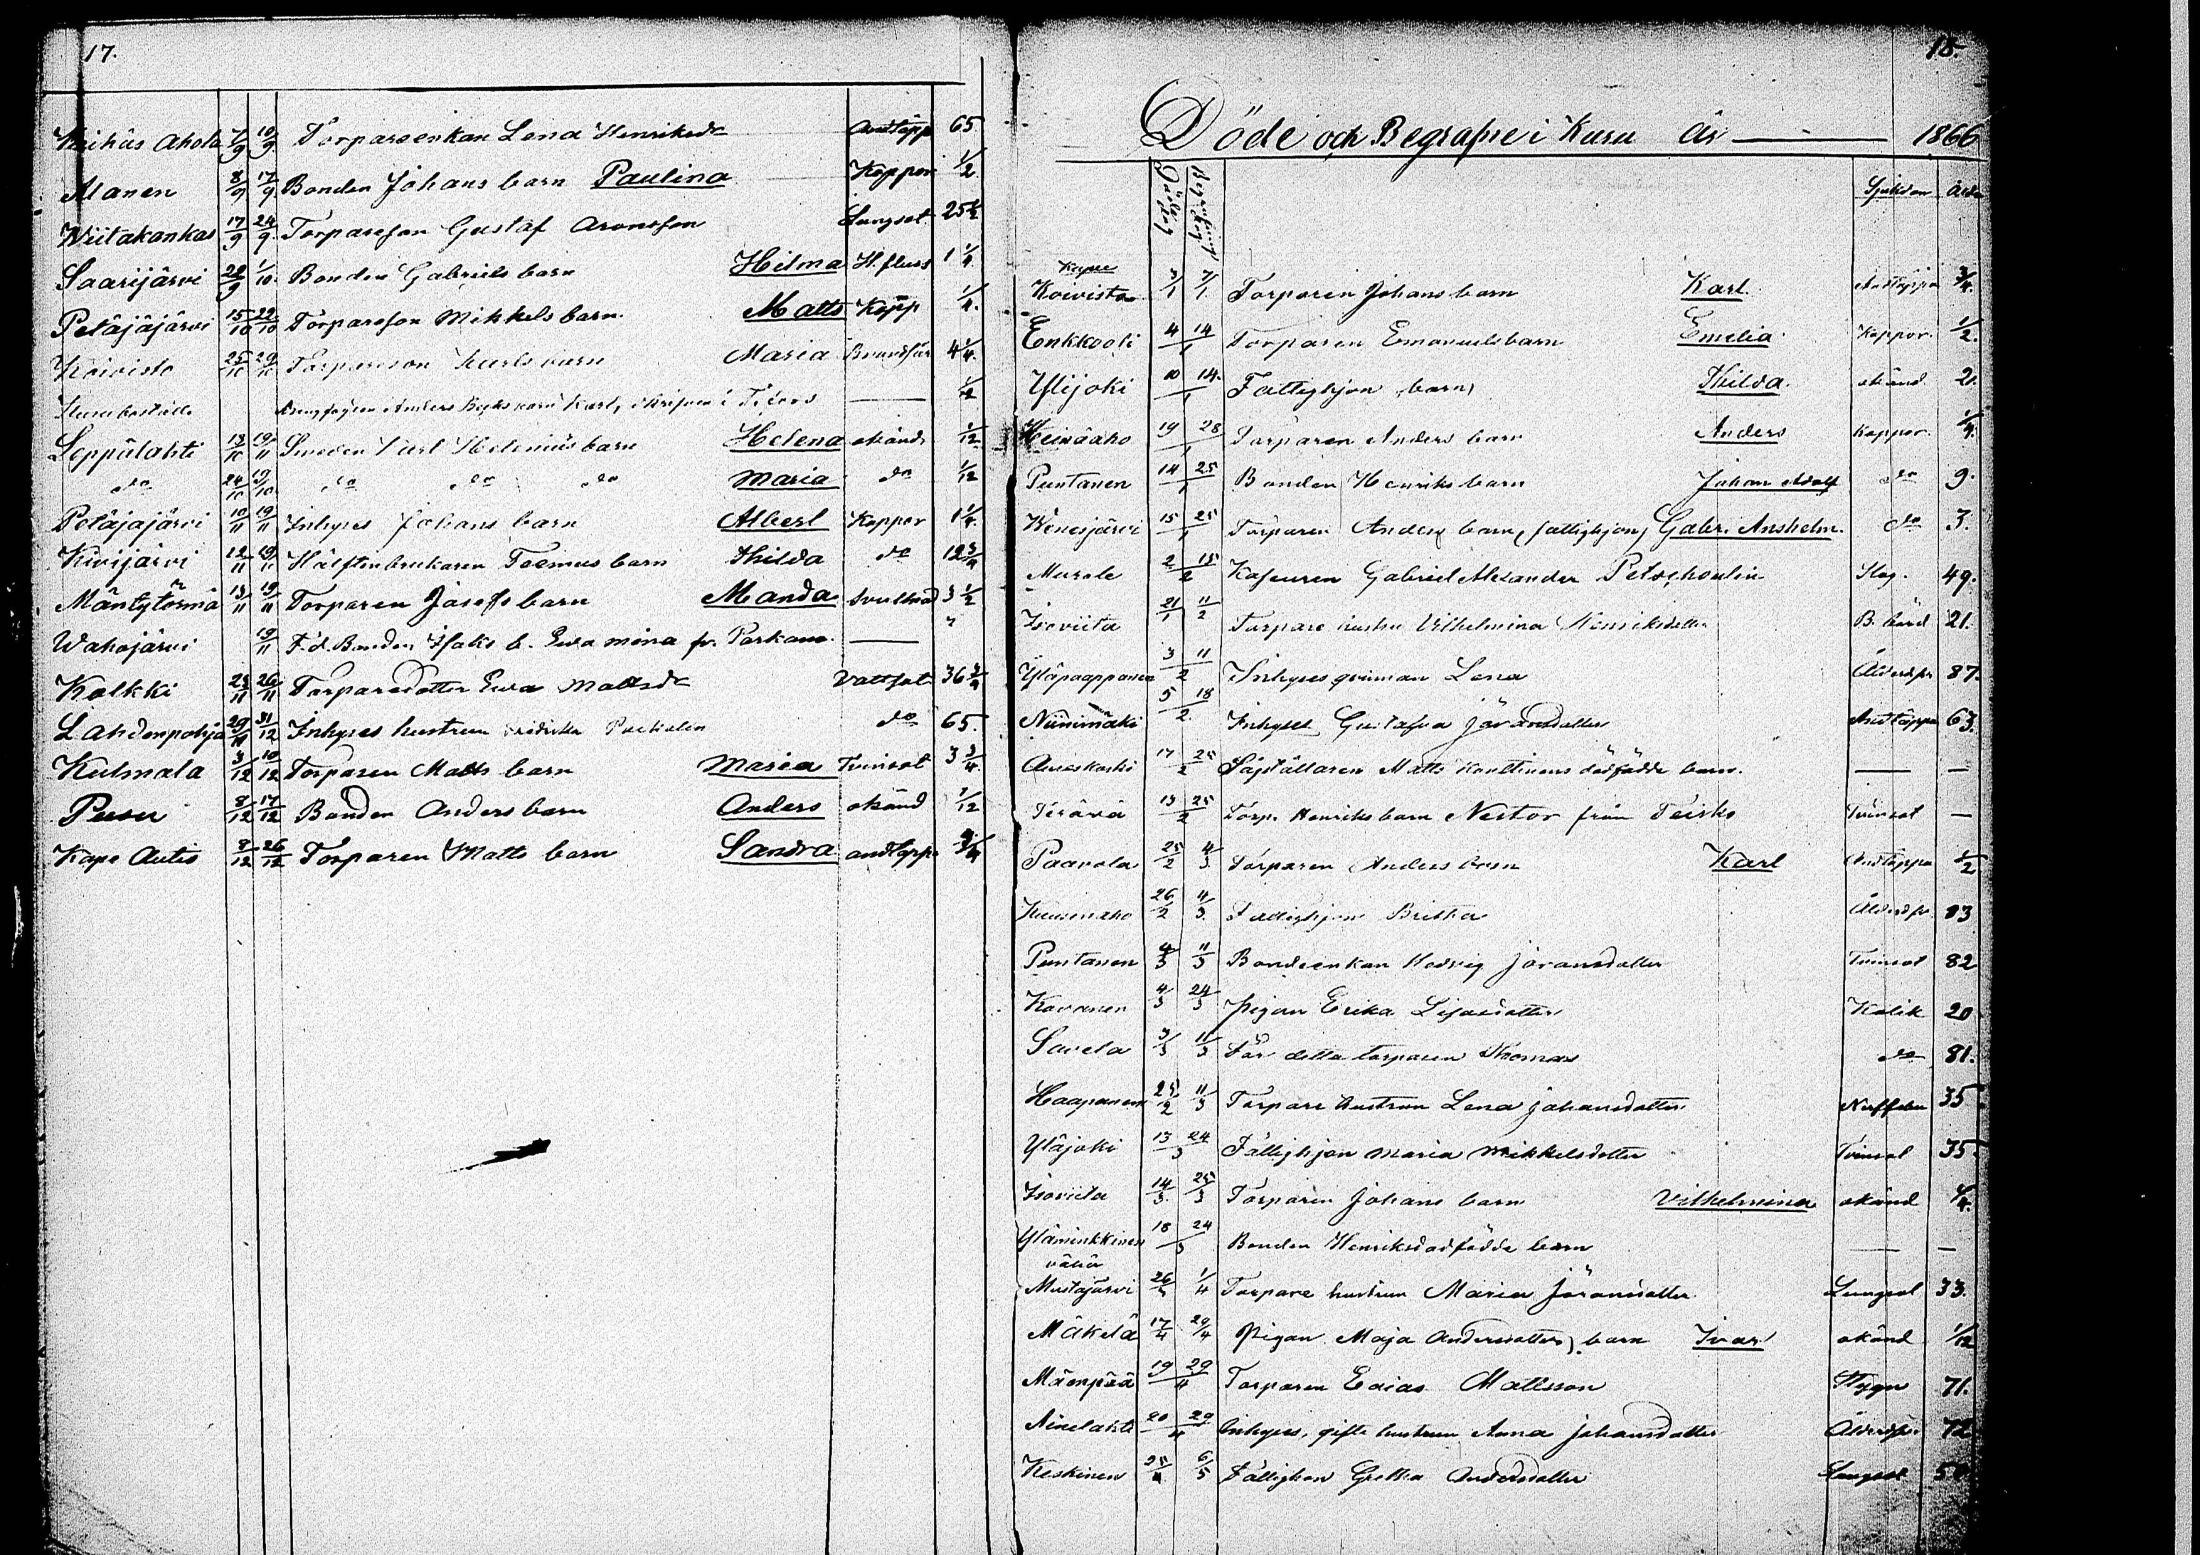 17.
Aholа 7/9 10/9 Torparenkan Lena Henriksdr Andtäpp 65
Alanen 8/9 17/9 Bonden Johans barn Paulina Koppor 1/2
Wiitakankas 17/9 24/9 Torpareson Gustaf Aronsson Lungsot 25 1/2
Saarijärvi 28/9 1/10 Bonden Gabriels barn Hilma H.fluss 1 1/4
Petäjäjärvi 15/10 22/10 Torpareson Mikkels barn Matts Kopp 1/4
Koivisto 25/10 29/10 Torpareson Karls barn Maria 4 1/4
Anders Karl, 1/2
Leppälahti 13/10 19/11 Smeden Karl Helenius barn Helena okänd 1/12
do 24/10 do do do Maria do 1/12
Petäjäjärvi 10/11 19/11 Inhyses Johans barn Albert Koppor 1 1/4
Kivijärvi 12/11 19/11 Hälftenbrukaren Toomas barn Hilda do 12 3/4
Mäntytörmä 13/11 19/11 Torparen Josefs barn Manda 3 1/2
Wahojärvi 19/11 F.d. Bonden Isaks b. Ewa Mina fr. Parkano —
Kolkki 23/11 26/11 Torparedotter Ewa Mattsdr Vattsot 36 3/4
Lahdenpohja 29/11 31/12 Inhyses hustrun Fredrika do 65.
Kulmala 3/12 10/12 Torparen Matts barn Maria Tvinsot 3 3/4
Pusu 8/12 17/12 Bonden Anders barn Anders okänd 1/12
Kape Autio 8/12 26/12 Torparen Matts barn Sandra andtäpp 3/4
18.
Döde och Begrafne i Kuru År — 1866
Döds dag Begrafnings dag Sjukdom Ålder
Kape
Koivisto 3/1 7/1 Torparen Johans barn Karl Andtäppa 3/4
Enkkooli 4 14/1 Torparen Emanuels barn Emelia Koppor 1/2
Ylijoki 10 14/1 Fattighjon barn Hilda okänd 2.
Heinäaho 19 28/1 Torparen Anders barn Anders Koppor 1/4
Puntanen 14 25/1 Bonden Henriks barn Johan Adolf do 9.
15 25/1 Torparen Anders barn, fattighjon, Gabr. Anshelm do 3.
Murole 2 18/2 Gabriel Alexander Petschoulin Slag. 49.
Isoviita 21/1 11/2 Torpare hustru Vilhelmina Henriksdotter B. börd 21.
Yläpoapponen 3 11/2 Inhyses qvinnan Lena Ålderdfr 87.
Niinimäki 5 18/2 Inhyses Gustafva Jöransdotter Andtäppa 63.
Aureskoski 17 25/2 Matts dödfödda barn. — —
Terävä 13 25/2 Torp. Henriks barn Nestor från Teisko Tvinsot —
Paavola 25/2 4/3 Torparen Anders barn Karl Andtäppa 1/2
Kuusenaho 26/2 4/3 Fattighjon Britha Ålderdfr 83
Puntanen 4/3 11/3 Bondeenkan Hedvig Jöransdotter Tvinsot 82
Kovanen 4/3 24/3 Pigan Erika Kolik 20
Savela 3/3 11/3 För detta torparen Thomas do 81.
Haapanen 25/2 11/3 Torpare hustrun Lena Johansdotter 35
Yläjoki 13 24/3 Fattighjon Maria Mikkelsdotter Tvinsot 35
Isoviita 14/3 25/3 Torparen Johans barn Vilhelmina okänd 1/4
Yläminkkinen 18 24/3 Bonden Henriks dödfödde barn — —
Mustajärvi 26/3 1/4 Torpare hustrun Maria Jöransdotter Lungsot 33.
Mäkelä 17/4 29/4 Pigan Maja Andersdotters barn Ivar okänd 1/12
Mäenpää 19 29/4 Torparen Esias Mattsson Stygn 71.
20 29/4 Inhyses, gifte hustrun Anna Johansdotter Ålderdfr 72
Keskinen 25/4 6/5 Fattighjon Gretha Andersdotter Lungsot